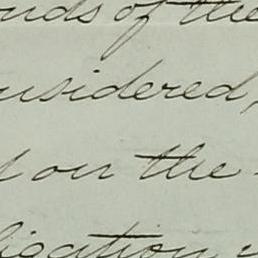 nds of the
nsidered,
on the
ligation